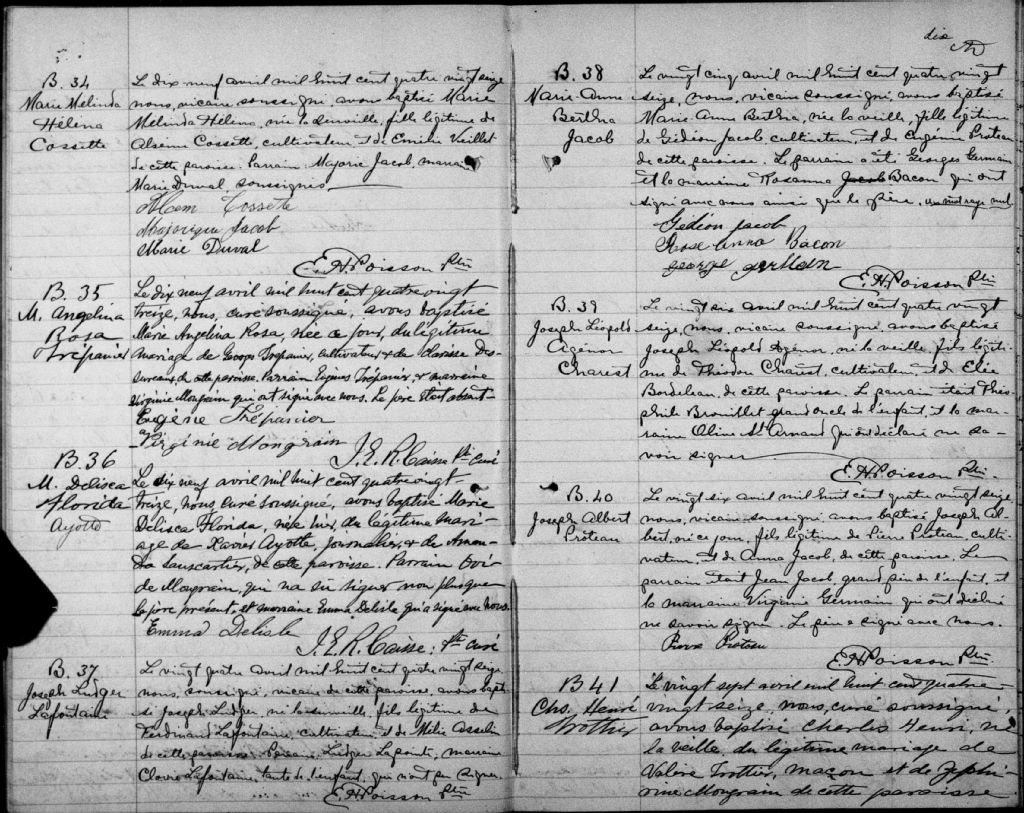 B. 34
Marie Mélinda
Hélèna
Cossette
Le dix neuf avril mil huit cent quatre vingt seize
nous, vicaire soussigné, avons baptisé Marie
Mélinda Hélèna, née la veille, fille légitime de
Cossette, cultivateur, et de Emélie Veillet
de cette paroisse. Parrain Majorie Jacob, marraine
Marie Duval, soussignés
Cossette
Majorique Jacob
Marie Duval
E. H. Poisson Ptre
B. 35
M. Angelina
Rosa
Trépanier
Le dix neuf avril mil huit cent quatre vingt
seize, nous, curé soussigné, avons baptisé
Marie Angelina Rosa, née ce jour, du légitime
mariage de Trépanier, cultivateur, & de Clarisse Des-
sureaux, de cette paroisse. Parrain Eugène Trépanier, & marraine
Virginie Mongrain qui ont signé avec nous. Le père était absent
Eugène Trépanier
Virginie Mongrain
J. E. R. Caisse Ptre curé
B. 36
M. Delisca
Florida
Ayotte
Le dix neuf avril mil huit cent quatrevingt
seize, nous, curé soussigné, avons baptisé Marie
Delisca Florida, née hier, du légitime mari-
age de Xavier Ayotte, journalier, & de Aman-
da de cette paroisse. Parrain Ovi-
de Mongrain, qui n'a su signer non plus que
le père présent, et marraine Emma Delisle qui a signé avec nous.
Emma Delisle
J. E. R. Caisse, Ptre curé
B. 37
Joseph Ludger
Lafontaine
Le vingt quatre avril mil huit cent quatre vingt seize
nous, soussigné, vicaire de cette paroisse, avons bapti-
sé Joseph Ludger, né la veille, fils légitime de
Ferdinand Lafontaine, cultivateur et de Mélie Asselin
de cette paroisse. Parrain Ludger marraine
Lafontaine, tante de l'enfant, qui n'ont pu signer.
E. H. Poisson Ptre
dix
B. 38
Marie Anne
Bertha
Jacob
Le vingt cinq avril mil huit cent quatre vingt
seize, nous, vicaire soussigné, avons baptisé
Marie Anne Bertha, née la veille, fille légitime
de Gédéon Jacob cultivateur, et de Eugénie Proteau
de cette paroisse. Le parrain a été Georges Germain
et la marraine Rosanna Jacob Bacon qui ont
signé avec nous ainsi que le père. un mot rayé nul.
Gédéon Jacob
Rose Anna Bacon
George Germain
E. H. Poisson Ptre
B. 39
Joseph Léopold
Agénor
Charest
Le vingt six avril mil huit cent quatre vingt
seize, nous, vicaire soussigné, avons baptisé
Joseph Léopold Agénor, né la veille, fils légiti-
me de Charest, cultivateur et de
Bordeleau, de cette paroisse. Le parrain était Théo-
phile Brouillet grand oncle de l'enfant, et la mar-
raine Oline St Arnaud qui ont déclaré ne sa-
voir signer
E. H. Poisson Ptre.
B. 40
Joseph Albert
Proteau
Le vingt six avril mil huit cent quatre vingt seize,
nous, vicaire soussigné, avons baptisé Joseph Al-
bert, né ce jour, fils légitime de Pierre Proteau, culti-
vateur, et de Anna Jacob, de cette paroisse. Le
parrain était Jean Jacob, grand père de l'enfant, et
la marraine Virginie Germain qui ont déclaré
ne savoir signer. Le père a signé avec nous.
Pierre Proteau
E. H. Poisson Ptre
B 41
Chs. Henri
Trottier
Le vingt sept avril mil huit cent quatre-
vingt seize, nous, curé soussigné,
avons baptisé Charles Henri, né
la veille du légitime mariage de
Valère Trottier, maçon et de Zéphi-
rine Mongrain de cette paroisse